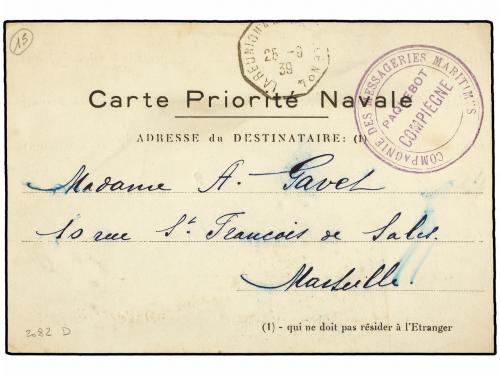 15
LA REUNION
25 - 9
39
COMPAGNIE DES MESSAGERIES MARITIMES
PAQUEBOT
COMPIEGNE
Carte Priorité Navale
ADRESSE du DESTINATAIRE: (1)
Madame A. Gavet
10 rue St François de Sales.
Marseille.
(1) - qui ne doit pas résider à l'Etranger
2082 D